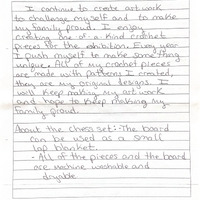 I continue to create art work
to challenge myself and to make
my family proud. I enjoy
creating one-of-a-kind crochet
pieces for the exhibition. Every year
I push myself to make something
unique. All of my crochet pieces
are made with patterns I created,
they are my original designs. I
will keep making my art work
and hope to keep making my
family proud.
About the chess set:- The board
can be used as a small
lap blanket.
- All of the pieces and the board
are machine washable and
dryable